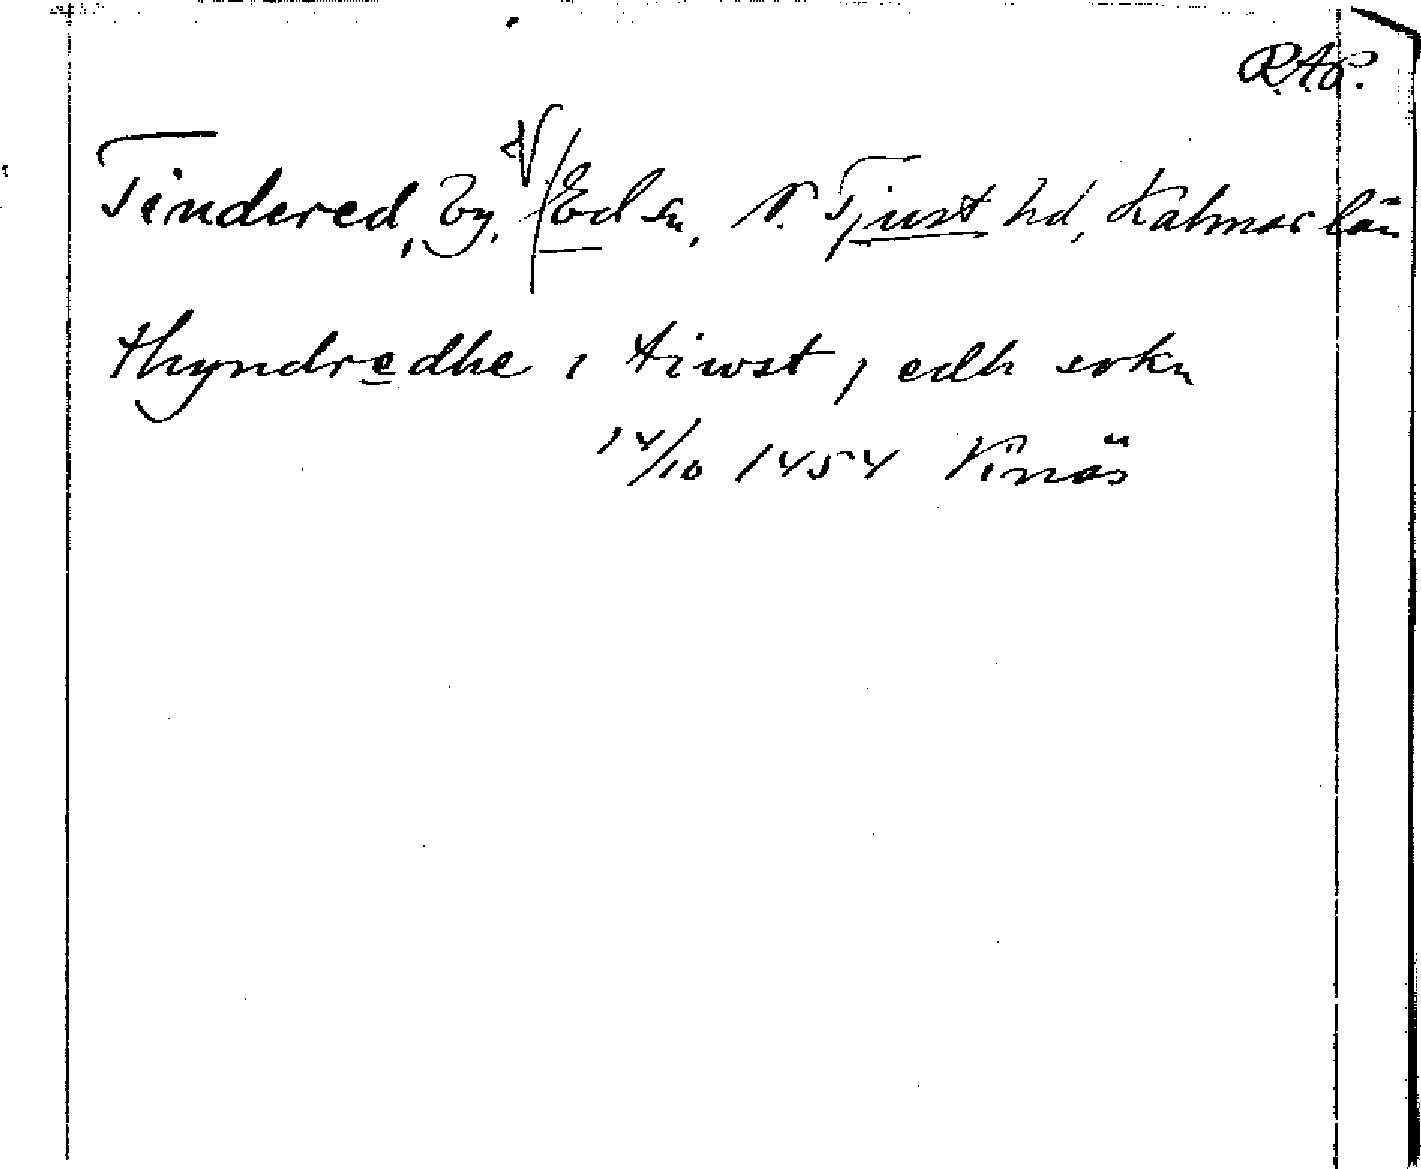 R.A.P.
Tindered, by, V Ed sn, N. Tjust hd, Kalmar län
thyndredhe i tiwst, edh sokn
14/10 1454 Vinäs